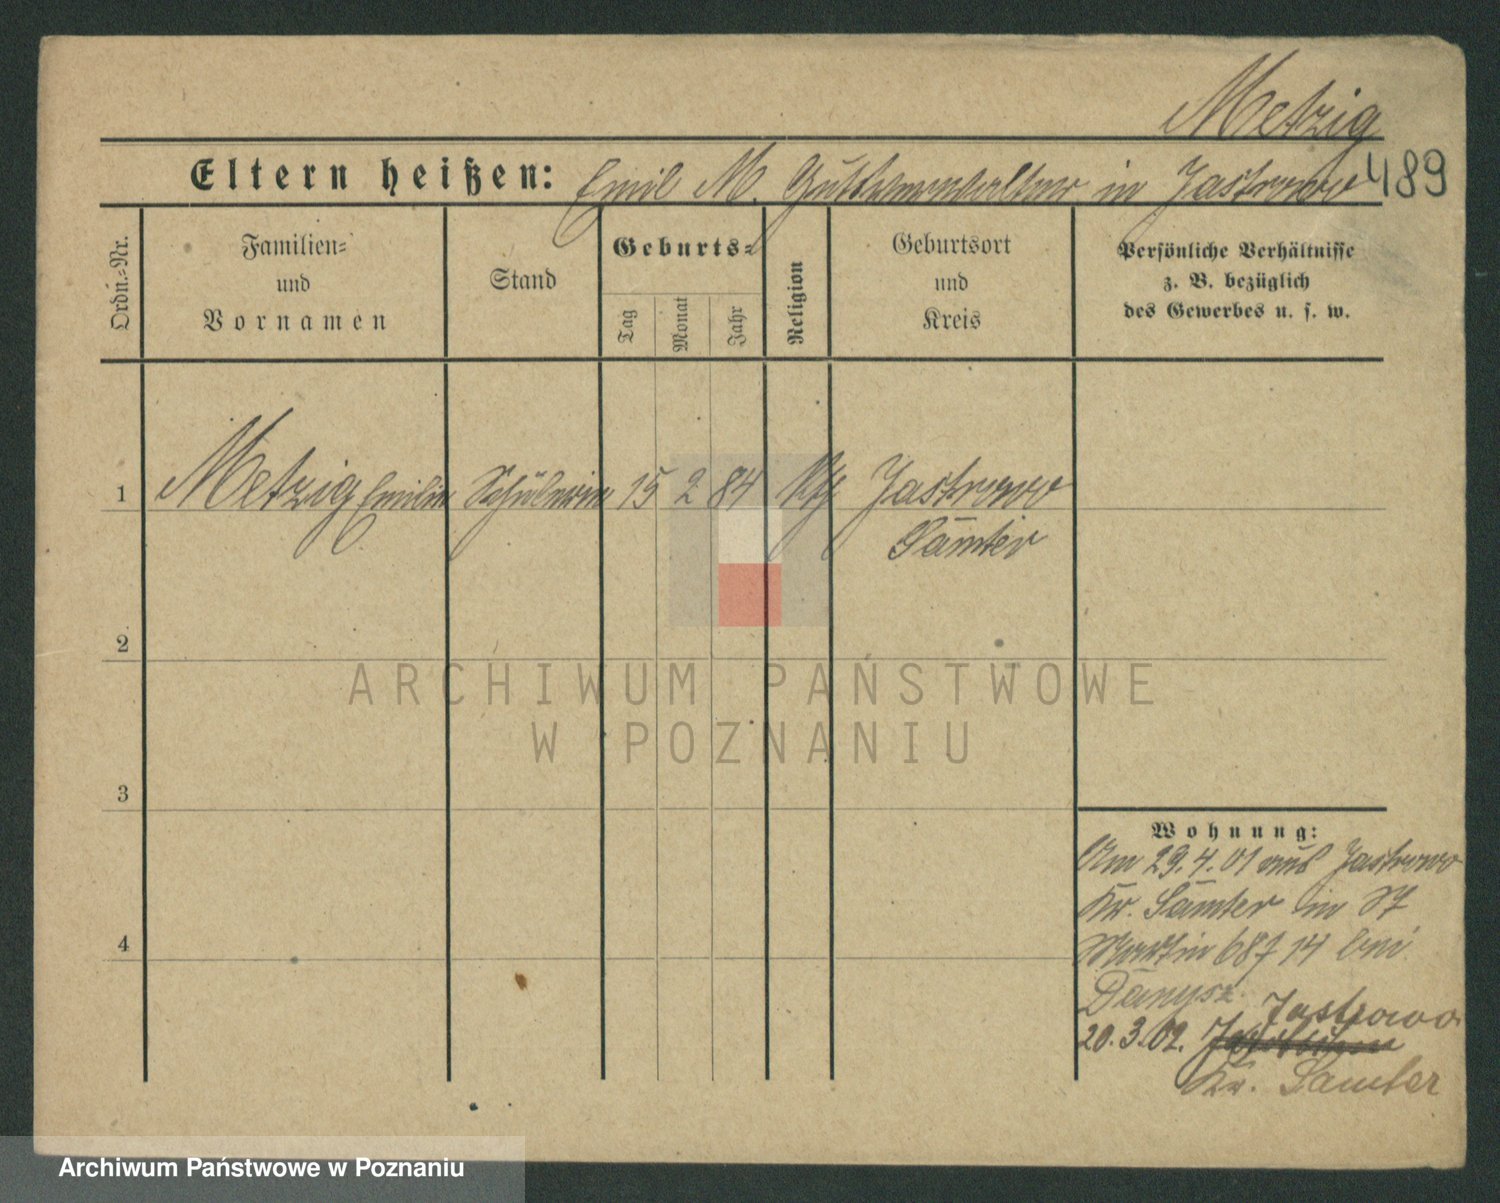 Metzig
Eltern heißen: Emil M. Gutsverwalter in Jastrowo 489
Ordn.-Nr.
Familien-
und
Vornamen
Stand
Geburts-
Tag
Monat
Jahr
Religion
Geburtsort
und
Kreis
Persönliche Verhältnisse
z. B. bezüglich
des Gewerbes u. s. w.
1 Metzig Emilie Schülerin 15 2 84 Kth Jastrowo
Samter
2
ARCHIWUM PAŃSTWOWE
W POZNANIU
3
Wohnung:
Am 29.4.01 aus Jastrowo
Kr. Samter in St
Martin 68 14 bei
4
Danysz
Jastrowo
20.3.02.
Kr. Samter
Archiwum Państwowe w Poznaniu